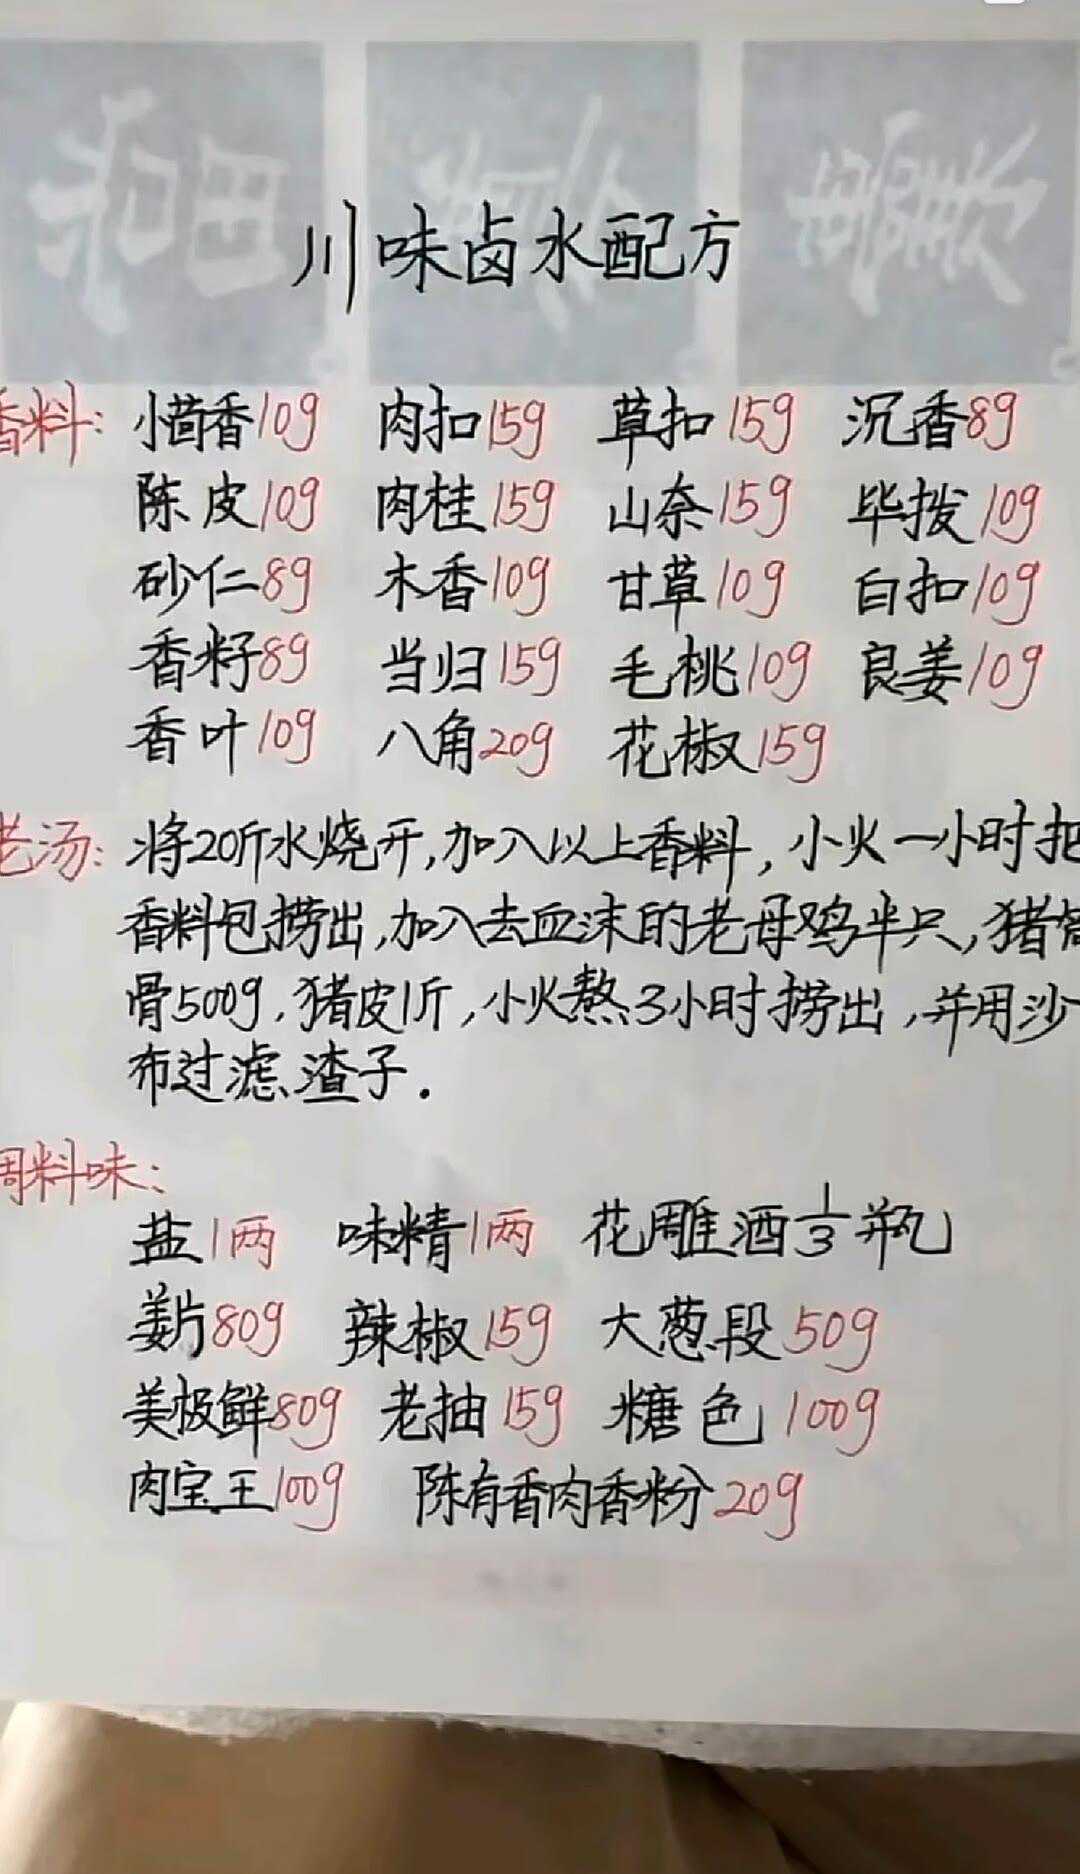 川味卤水配方
香料: 小茴香10g 肉扣15g 草扣15g 沉香8g
陈皮10g 肉桂15g 山奈15g 毕拨10g
砂仁8g 木香10g 甘草10g 白扣10g
香籽8g 当归15g 毛桃10g 良姜10g
香叶10g 八角20g 花椒15g
老汤: 将20斤水烧开,加入以上香料,小火一小时把
香料包捞出,加入去血沫的老母鸡半只,猪筒
骨500g,猪皮1斤,小火熬3小时捞出,并用沙
布过滤渣子.
调料味:
盐1两 味精1两 花雕酒1/3瓶
姜片80g 辣椒15g 大葱段50g
美极鲜80g 老抽15g 糖色100g
肉宝王100g 陈有香肉香粉20g